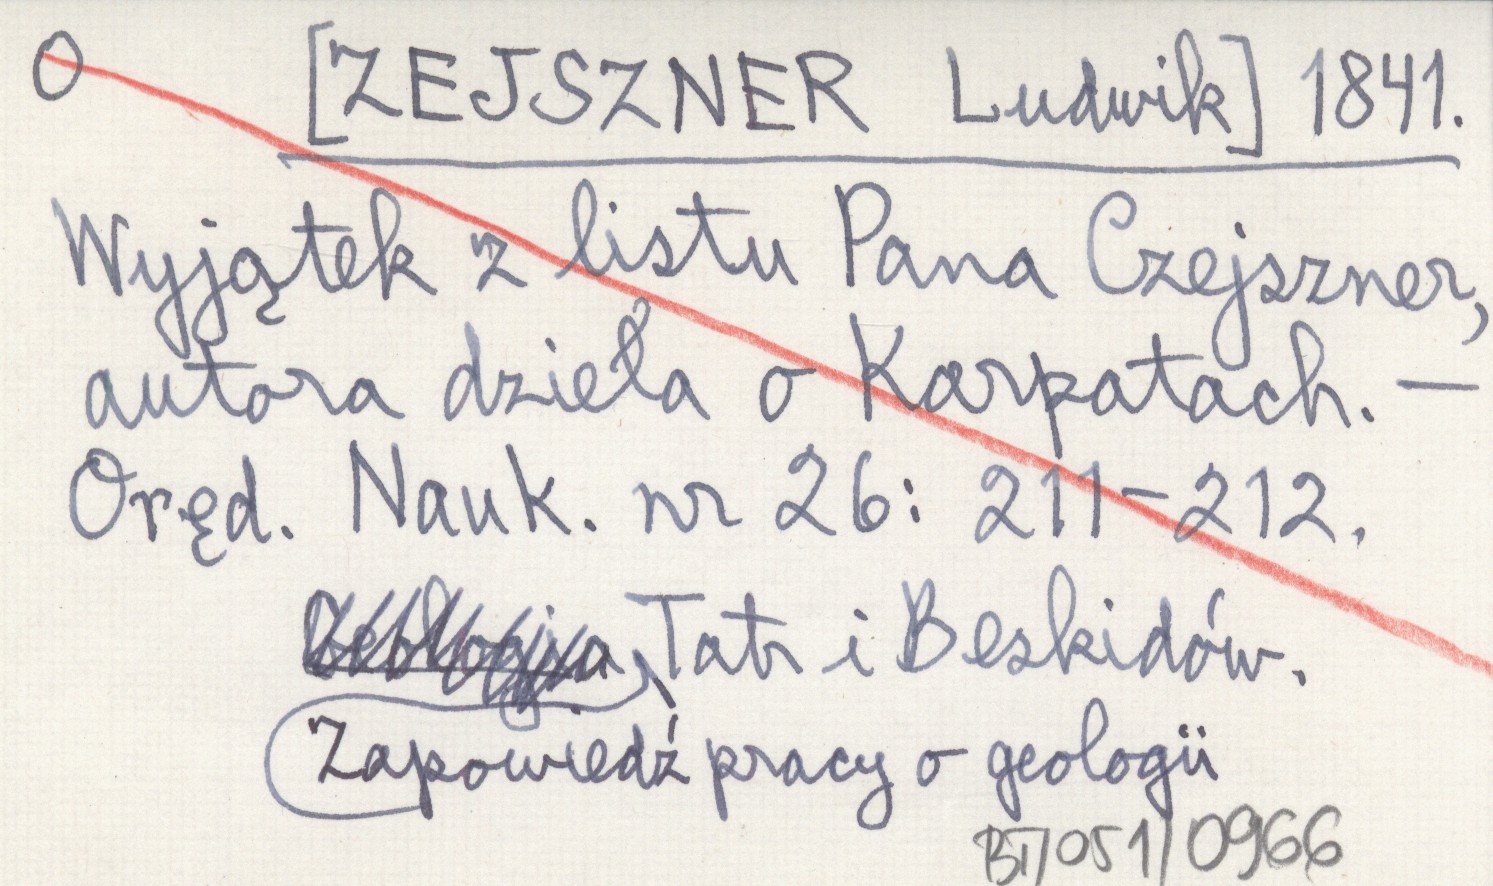 O [ZEJSZNER Ludwik] 1841.
Wyjątek z listu Pana Czejszner,
autora dzieła o Karpatach. —
Oręd. Nauk. nr 26: 211-212.
Geologia Tatr i Beskidów.
Zapowiedź pracy o geologii
BT/051/0966